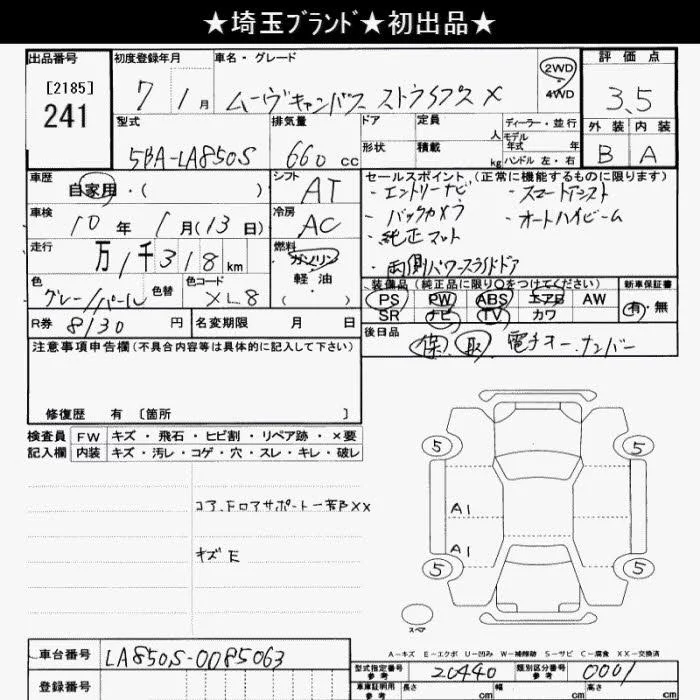 ★埼玉ﾌﾞﾗﾝﾄﾞ★初出品★
出品番号 初度登録年月 車名・グレード 2WD 評価点
[2185] 7 1月 ムーヴキャンバス ストライプス X 4WD 3.5
241 外装 内装
型式 排気量 ドア 定員 人 ディーラー・並行
5BA-LA850S 660 cc 形状 積載 kg モデル年式 年 B A
ハンドル 左・右
車歴 シフト セールスポイント(正常に機能するものに限ります)
自家用・( ) AT ・エントリーナビ ・スマートアシスト
車検 冷房 ・バックカメラ ・オートハイビーム
10年 1月(13日) AC ・純正マット
走行 燃料 ・両側パワースライドドア
万1千318km ガソリン
軽油
( )
色 色替 色コード 装備品(純正品に限り○をつけてください) 新車保証書
グレー/パール XL8 PS PW ABS エアB AW 有・無
SR ナビ TV カワ
R券 8130円 名変期限 月 日 後日品
注意事項申告欄(不具合内容等は具体的に記入して下さい) 保 取 電子オーナンバー
修復歴 有 [箇所 ]
検査員 FW キズ・飛石・ヒビ割・リペア跡・×要
記入欄 内装 キズ・汚レ・コゲ・穴・スレ・キレ・破レ
5 5
コア、ドロアサポート一部XX
A1
キズE
A1
5 5
スペア
A-キズ E-エクボ U-凹み W-補修跡 S-サビ C-腐食 XX-交換済
車台番号 LA850S-0085063
型式指定番号 参考 20440 類別区分番号 参考 0001
登録番号
車庫証明用 参考 長さ cm 幅 cm 高さ cm